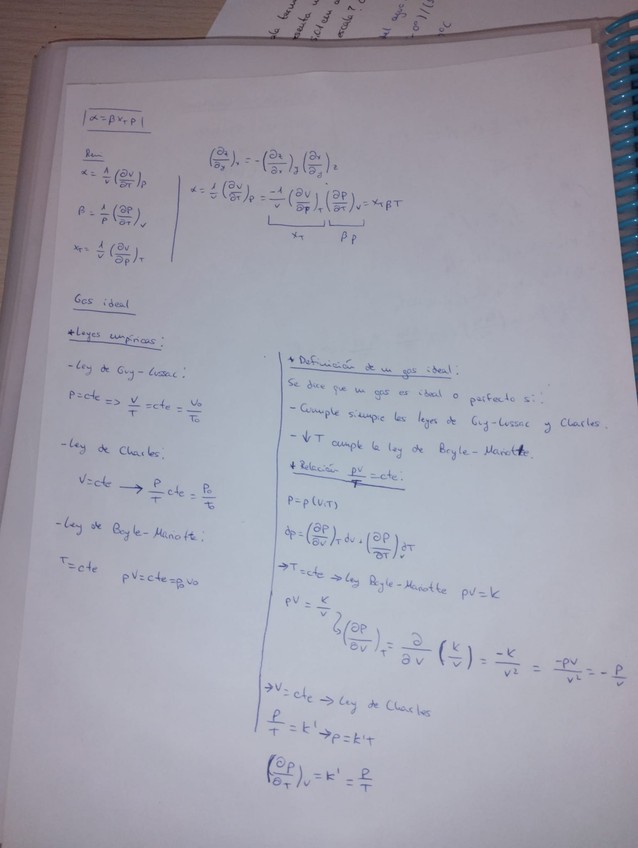 α=βχ_T P
Dem
α = 1/v (∂v/∂T)_P
β = 1/P (∂P/∂T)_v
χ_T = 1/v (∂v/∂P)_T
(∂z/∂y)_x = -(∂z/∂x)_y (∂x/∂y)_z
α = 1/v (∂v/∂T)_P = -1/v (∂v/∂P)_T (∂P/∂T)_v = χ_T β T
χ_T βP
Gas ideal
*Leyes empíricas:
-Ley de Guy-Lussac:
P=cte => V/T = cte = V0/T0
-Ley de Charles:
V=cte → P/T cte = P0/T0
-Ley de Boyle-Mariotte:
T=cte PV=cte=P0V0
* Definición de un gas ideal:
Se dice que un gas es ideal o perfecto si:
- Cumple siempre las leyes de Guy-Lussac y Charles.
- ↓T cumple la ley de Boyle-Mariotte.
* Relación PV/T = cte:
P=P(V,T)
∂P = (∂P/∂V)_T dV + (∂P/∂T)_V ∂T
→T=cte → Ley Boyle-Mariotte PV=K
PV = K/V
↳ (∂P/∂V)_T = ∂/∂V (K/V) = -K/V² = -PV/V² = -P/V
→V=cte → Ley de Charles
P/T = K' → P=K'T
(∂P/∂T)_V = K' = P/T